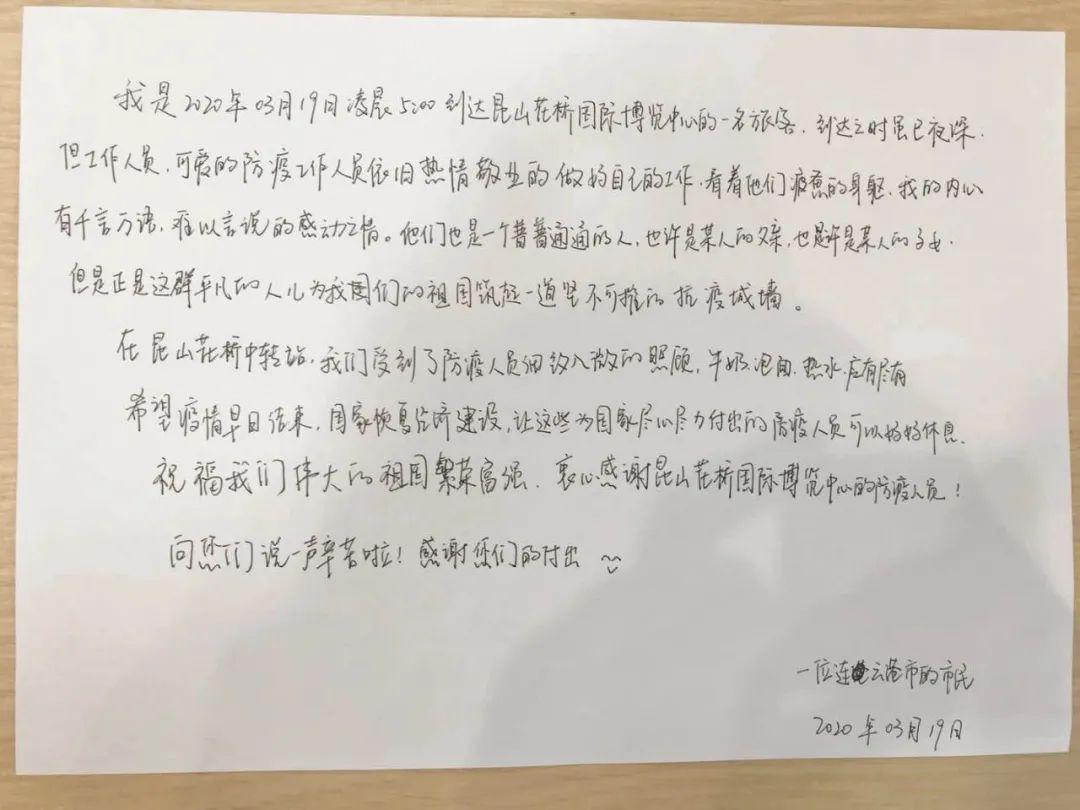 我是2020年03月19日凌晨5:00到达昆山花桥国际博览中心的一名旅客.到达之时虽已夜深.
但工作人员.可爱的防疫工作人员依旧热情敬业的做好自己的工作.看着他们疲惫的身躯.我的内心
有千言万语,难以言说的感动之情。他们也是一个普普通通的人,也许是某人的父亲,也是许是某人的子女.
但是正是这群平凡的人儿为我国们的祖国筑起一道坚不可摧的抗疫城墙。
在昆山花桥中转站.我们受到了防疫人员细致入微的照顾,牛奶.泡面.热水.应有尽有
希望疫情早日结束,国家恢复经济建设,让这些为国家尽心尽力付出的防疫人员可以好好休息.
祝福我们伟大的祖国繁荣富强.衷心感谢昆山花桥国际博览中心的防疫人员!
向您们说一声辛苦啦!感谢您们的付出
一位连云港市的市民
2020年03月19日